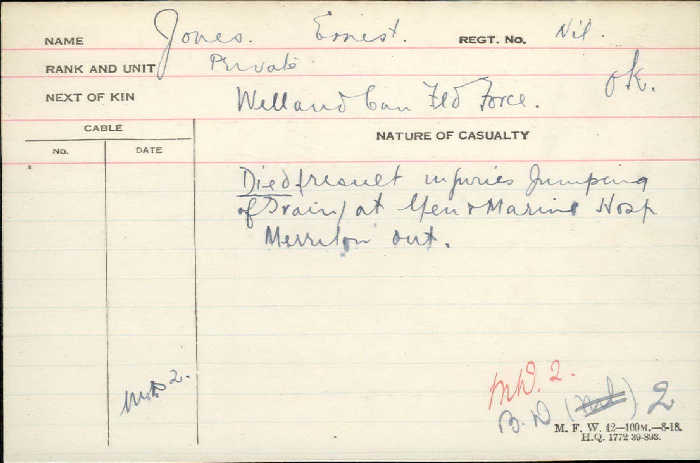 NAME Jones. Ernest. REGT. No. Nil.
RANK AND UNIT Private
NEXT OF KIN Welland Can Fld Force. OK.
CABLE
No. DATE
NATURE OF CASUALTY
Died (result injuries Jumping
of Train) at Gen & Marine Hosp
Merriton Ont.
M.D 2.
M.D. 2.
B.D (Nil) 2
M. F. W. 42—100M.—8-18.
H.Q. 1772 39-893.